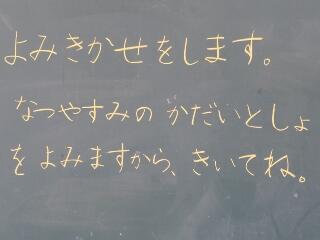 よみきかせをします。
なつやすみの かだいとしょ
を よみますから、きいてね。